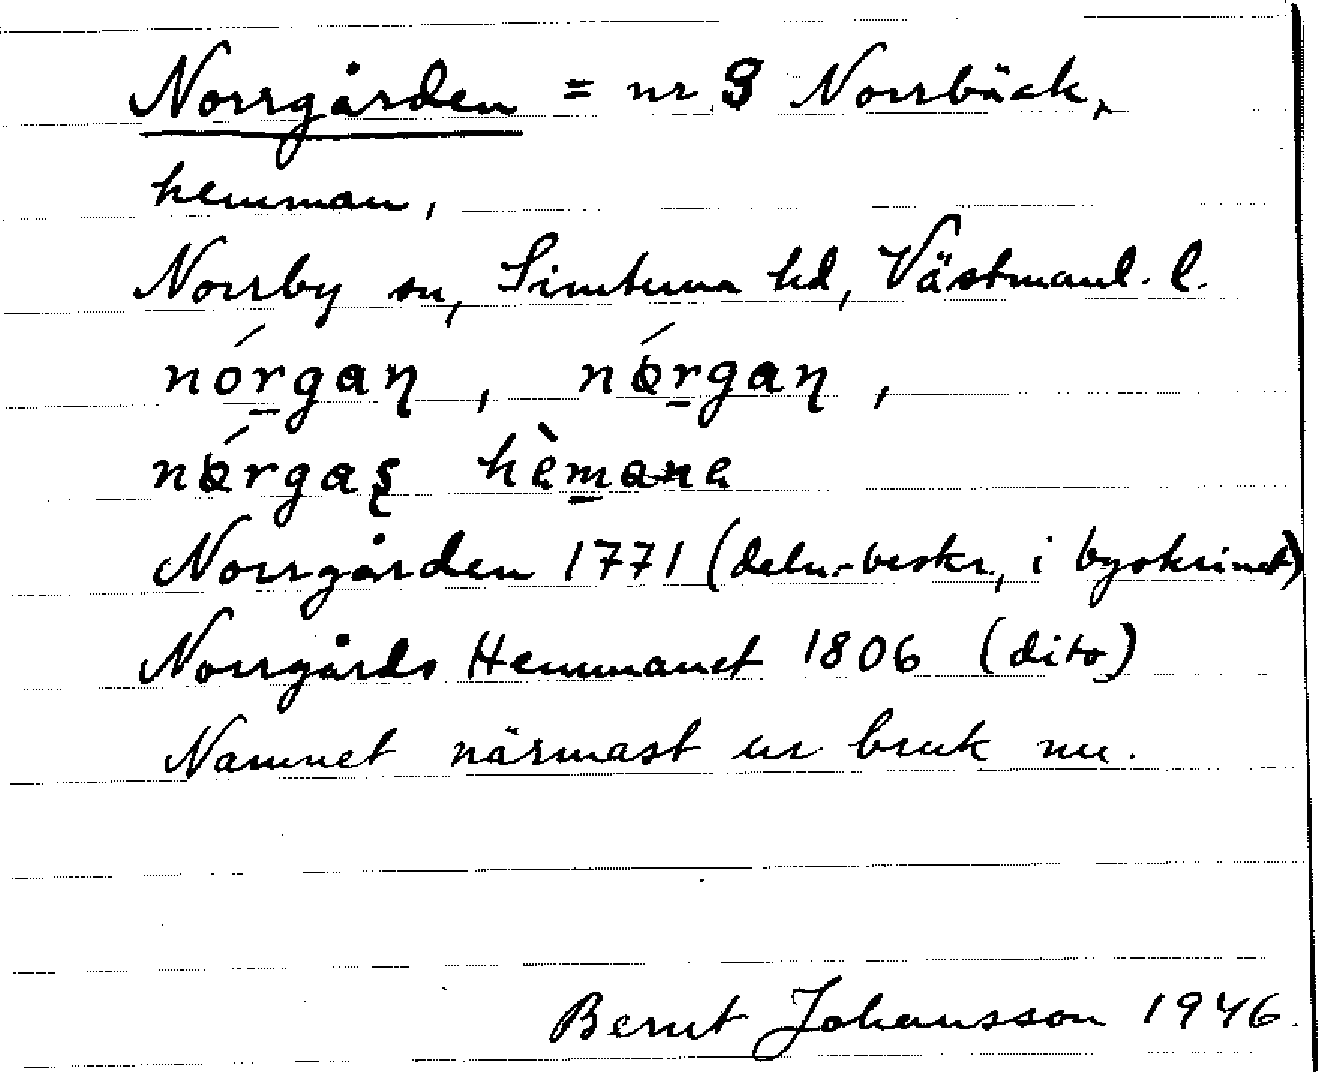 Norrgården = nr 3 Norrbäck,
hemman,
Norrby sn, Simtuna hd, Västmanl. l.
nórgaɳ, nǿrgaɳ,
nǿrgaʂ hèmanə
Norrgården 1771 (deln.-beskr, i byskrinet)
Norrgårds Hemmanet 1806 (dito)
Namnet närmast ur bruk nu.
Bernt Johansson 1946.